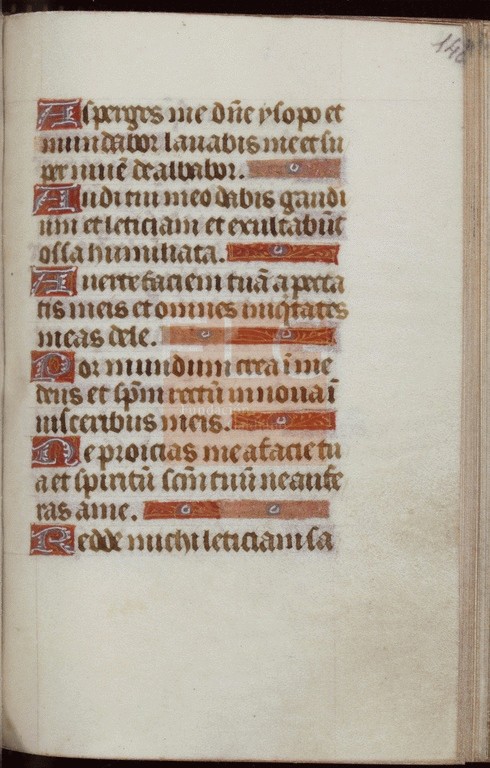 148
Asperges me dñe ysopo et
mundabor lauabis me et su
per niuē dealbabor.
Auditui meo dabis gaudi
um et leticiam et exultabūt
ossa humiliata.
Auerte faciem tuā a pecca
tis meis et omnes iniq̄tates
meas dele.
Cor mundum crea ī me
deus et sp̄m rectū innoua ī
uisceribus meis.
Ne proicias me a facie tu
a et spiritū scm̄ tuū ne aufe
ras a me.
Redde michi leticiam sa
Fundación